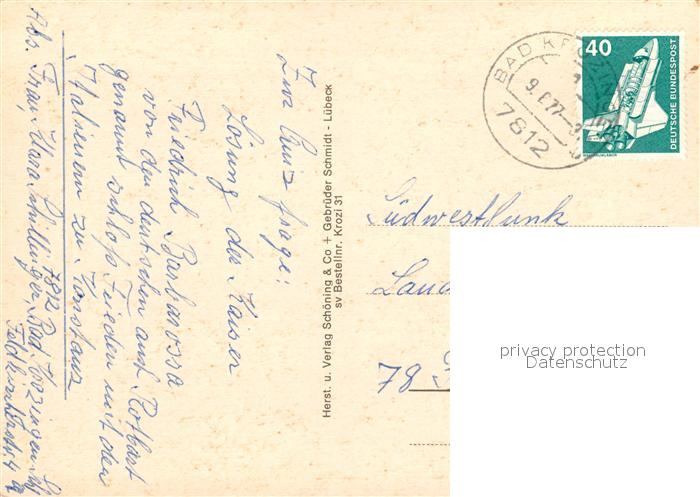 Zur Quizfrage:
Lösung der Kaiser
Friedrich Barbarossa
von den deutschen auch Rotbart
genannt schloß Frieden mit den
Italienern zu Konstanz
Abs. Frau Klara Dillinger, 7812 Bad Krozingen
Herst. u. Verlag Schöning & Co + Gebrüder Schmidt - Lübeck
sv Bestellnr. Krozi 31
BAD KROZINGEN
7812
40
DEUTSCHE BUNDESPOST
Südwestfunk
78
privacy protection
Datenschutz